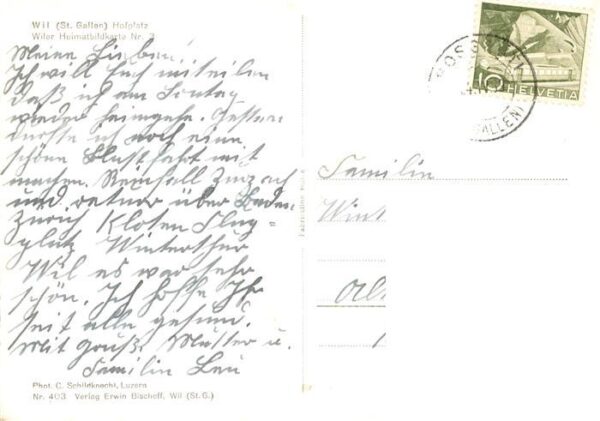 Wil (St. Gallen) Hofplatz
Wiler Heimatbildkarte Nr. 3
Meine Lieben!
Ich will Euch mitteilen
daß ich am Sontag
wieder heimgehe. Gestern
durfte ich noch eine
schöne Lustfahrt mit
machen. Reinfall Zurzach
und retour über Baden
Zürich Kloten Flug=
platz Winterthur
Wil es war sehr
schön. Ich hoffe Ihr
seit alle gesund.
Mit Gruß Mutter u.
Familie Leu
Phot. C. Schildknecht, Luzern
Nr. 403 Verlag Erwin Bischoff, Wil (St. G.)
10
HELVETIA
GALLEN)
Familie
Wint